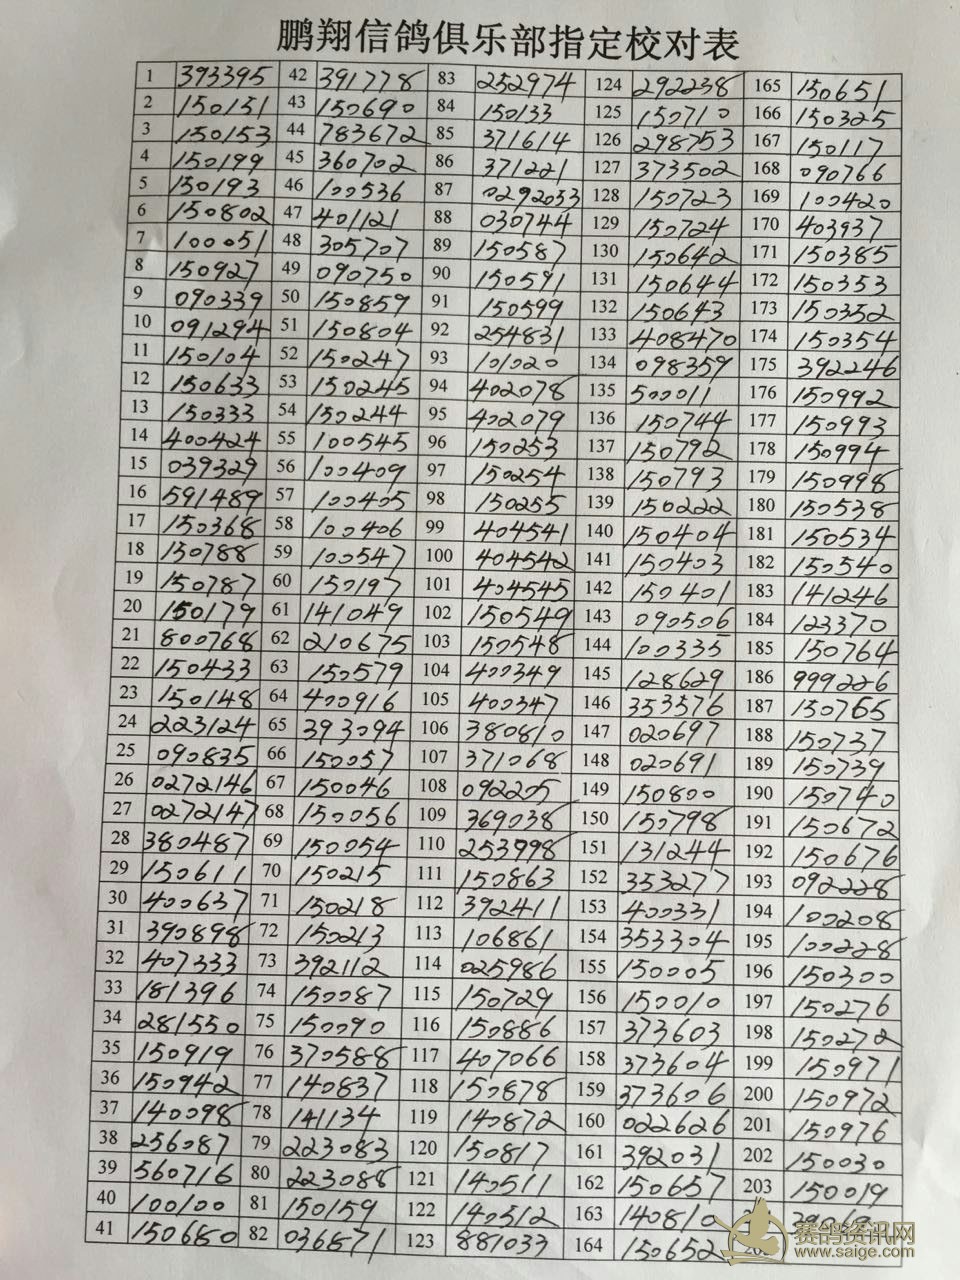 鹏翔信鸽俱乐部指定校对表
1 393395 42 391778 83 252974 124 292238 165 150651
2 150151 43 150690 84 150133 125 150710 166 150325
3 150153 44 783672 85 371614 126 298753 167 150117
4 150199 45 360702 86 371221 127 373502 168 090766
5 150193 46 100536 87 0292053 128 150723 169 100420
6 150802 47 401121 88 030744 129 150724 170 403937
7 100051 48 305707 89 150587 130 150642 171 150385
8 150927 49 090750 90 150591 131 150644 172 150353
9 090339 50 150859 91 150599 132 150643 173 150352
10 091294 51 150804 92 254831 133 408470 174 150354
11 150104 52 150247 93 101020 134 098359 175 392246
12 150633 53 150245 94 402078 135 500011 176 150992
13 150333 54 150244 95 402079 136 150744 177 150993
14 400424 55 100545 96 150253 137 150792 178 150994
15 039329 56 100409 97 150254 138 150793 179 150998
16 591489 57 100405 98 150255 139 150222 180 150538
17 150368 58 100406 99 404541 140 150404 181 150534
18 150788 59 100547 100 404542 141 150403 182 150540
19 150787 60 150197 101 404545 142 150401 183 141246
20 150179 61 141049 102 150549 143 090506 184 123370
21 800768 62 210675 103 150548 144 100335 185 150764
22 150433 63 150579 104 400349 145 128629 186 999226
23 150148 64 400916 105 400347 146 353576 187 150765
24 223124 65 393094 106 380810 147 020697 188 150737
25 090835 66 150057 107 371068 148 020691 189 150739
26 0272146 67 150046 108 092205 149 150800 190 150740
27 0272147 68 150056 109 369038 150 150798 191 150672
28 380487 69 150054 110 253998 151 131244 192 150676
29 150611 70 150215 111 150863 152 353277 193 092228
30 400637 71 150218 112 392411 153 400331 194 100208
31 390898 72 150213 113 106861 154 353304 195 100228
32 407333 73 392112 114 025986 155 150005 196 150300
33 181396 74 150087 115 150729 156 150010 197 150276
34 281550 75 150090 116 150886 157 373603 198 150272
35 150919 76 370588 117 407066 158 373604 199 150971
36 150942 77 140837 118 150878 159 373606 200 150972
37 140098 78 141134 119 140872 160 022626 201 150976
38 256087 79 223083 120 150817 161 392031 202 150030
39 560716 80 223088 121 140511 162 150657 203 150019
40 100100 81 150159 122 140512 163 140810
41 150680 82 036871 123 881033 164 150652
赛鸽资讯网
www.saige.com